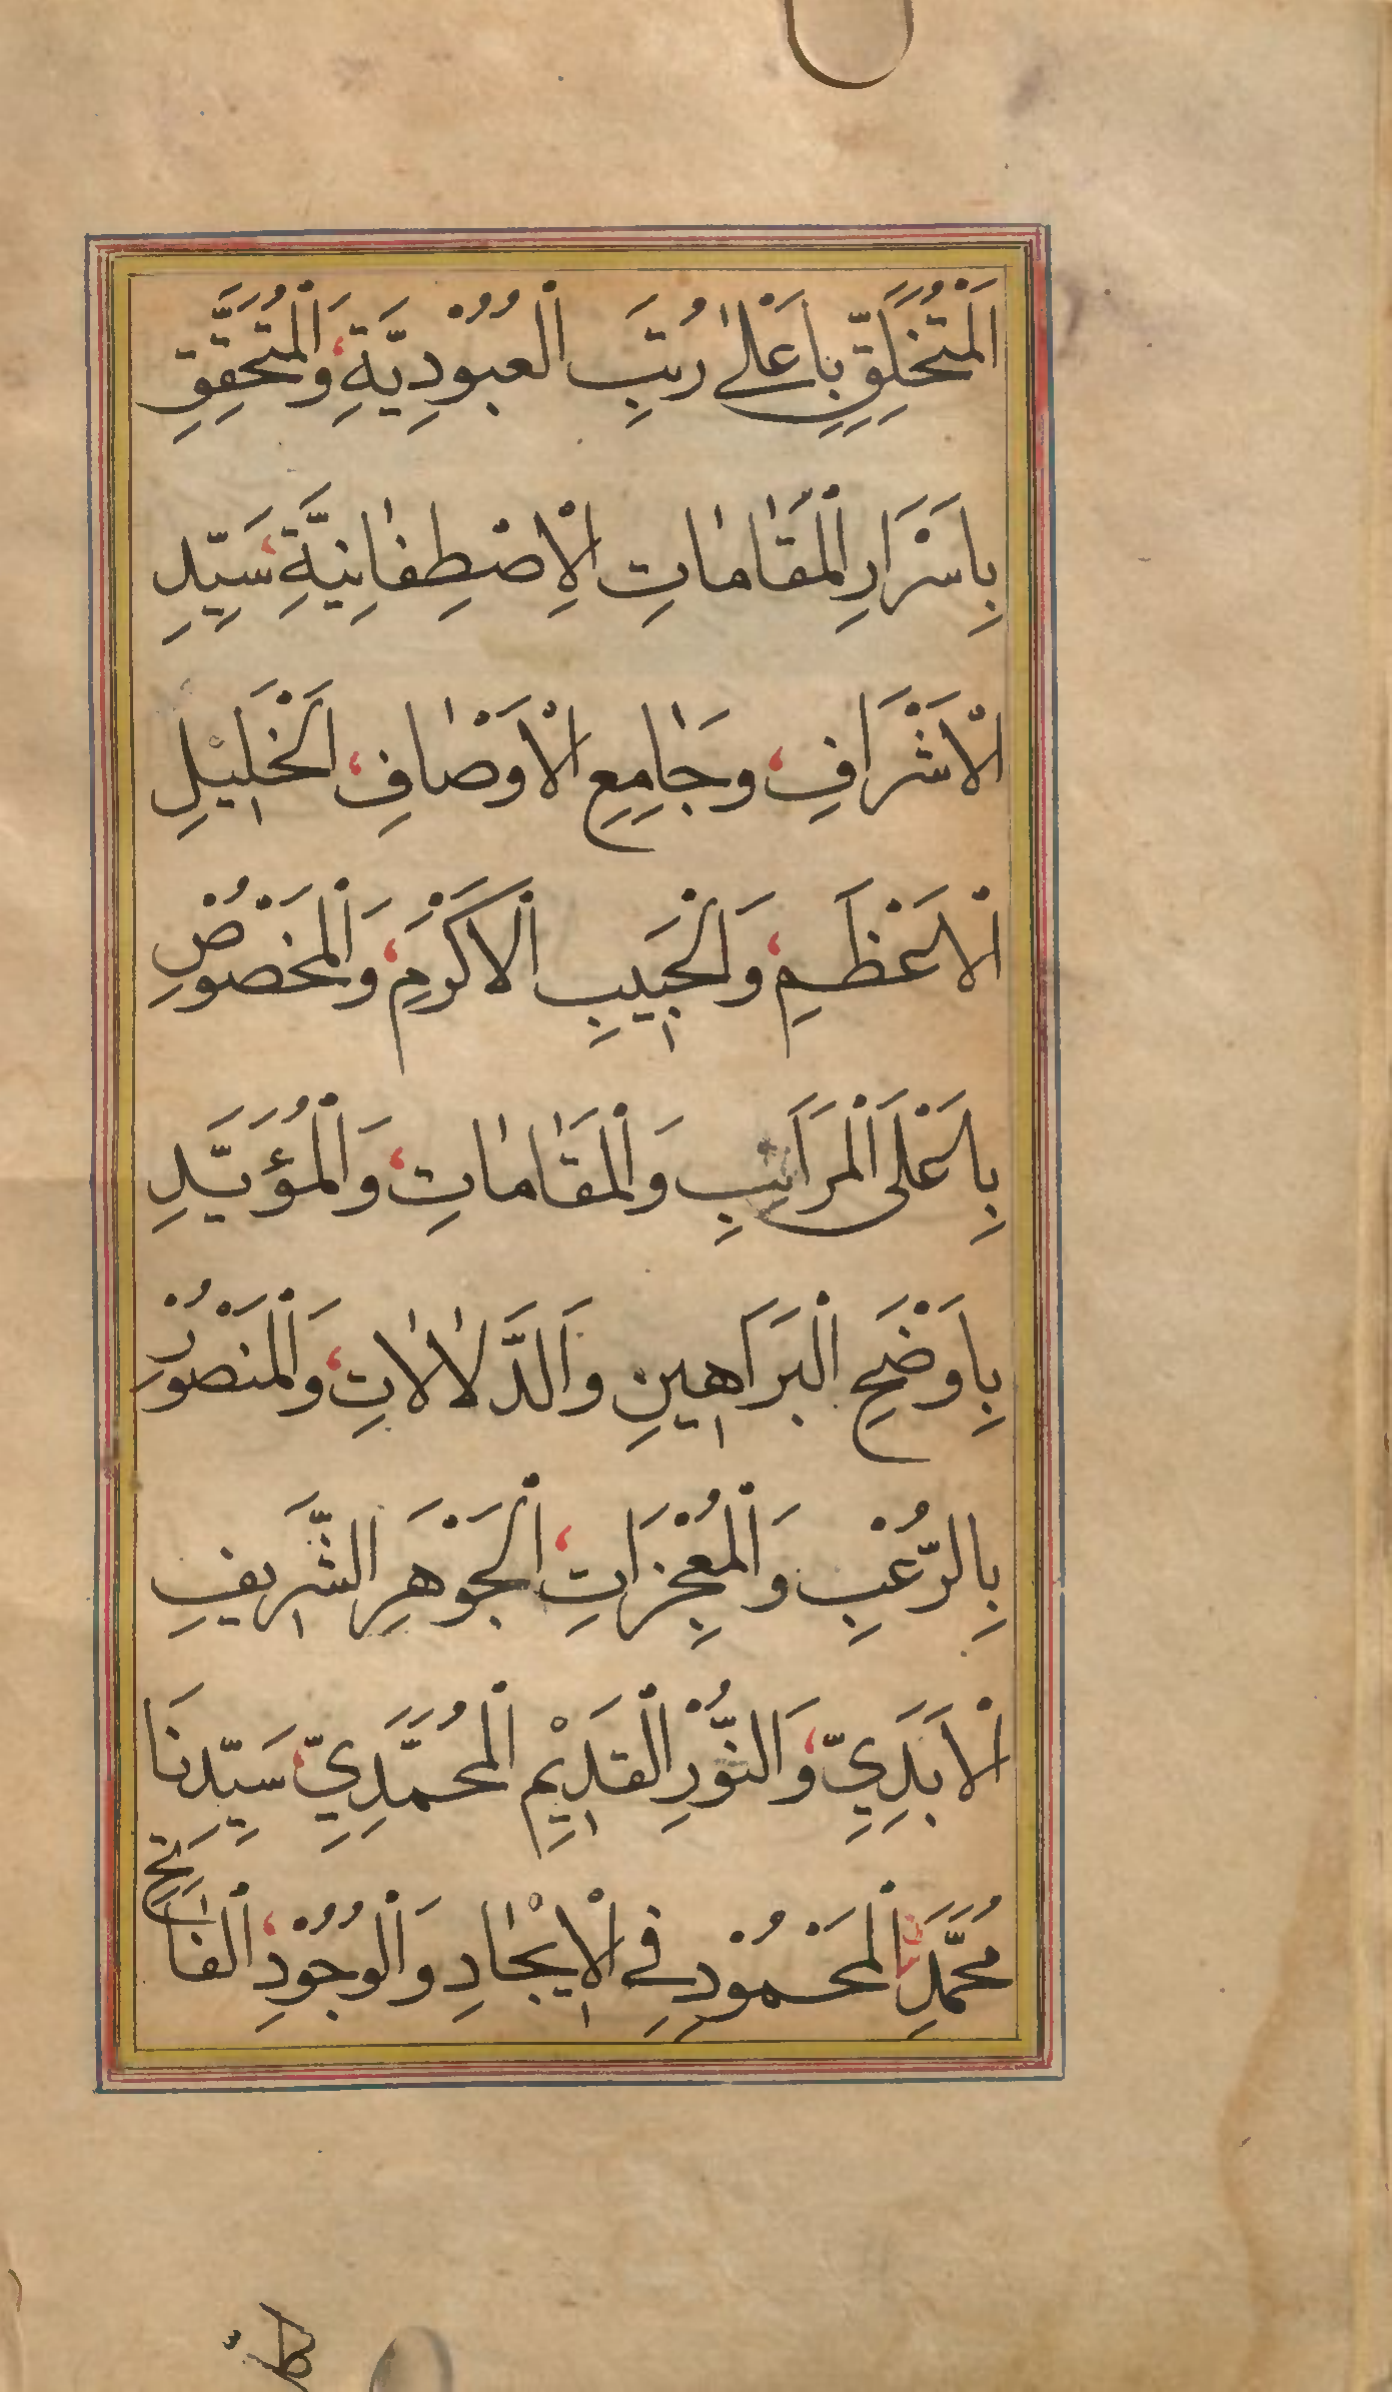 اَلْمُتَخَلِّقِ بِاَعْلٰى رُتَبِ الْعُبُوْدِيَّةِ، وَالْمُتَحَقِّقِ
بِاَسْرَارِ الْمَقَامَاتِ الْاِصْطِفَائِيَّةِ، سَيِّدِ
الْاَشْرَافِ، وَجَامِعِ الْاَوْصَافِ، اَلْخَلِيْلِ
الْاَعْظَمِ، وَالْحَبِيْبِ الْاَكْرَمِ، وَالْمَخْصُوْصِ
بِاَعْلَى الْمَرَاتِبِ وَالْمَقَامَاتِ، وَالْمُؤَيَّدِ
بِاَوْضَحِ الْبَرَاهِيْنِ وَالدَّلَالَاتِ، وَالْمَنْصُوْرِ
بِالرُّعْبِ وَالْمُعْجِزَاتِ، اَلْجَوْهَرِ الشَّرِيْفِ
الْاَبَدِيِّ، وَالنُّوْرِ الْقَدِيْمِ الْمُحَمَّدِيِّ، سَيِّدِنَا
مُحَمَّدِنِ الْمَحْمُوْدِ فِي الْاِيْجَادِ وَالْوُجُوْدِ، اَلْفَاتِحِ